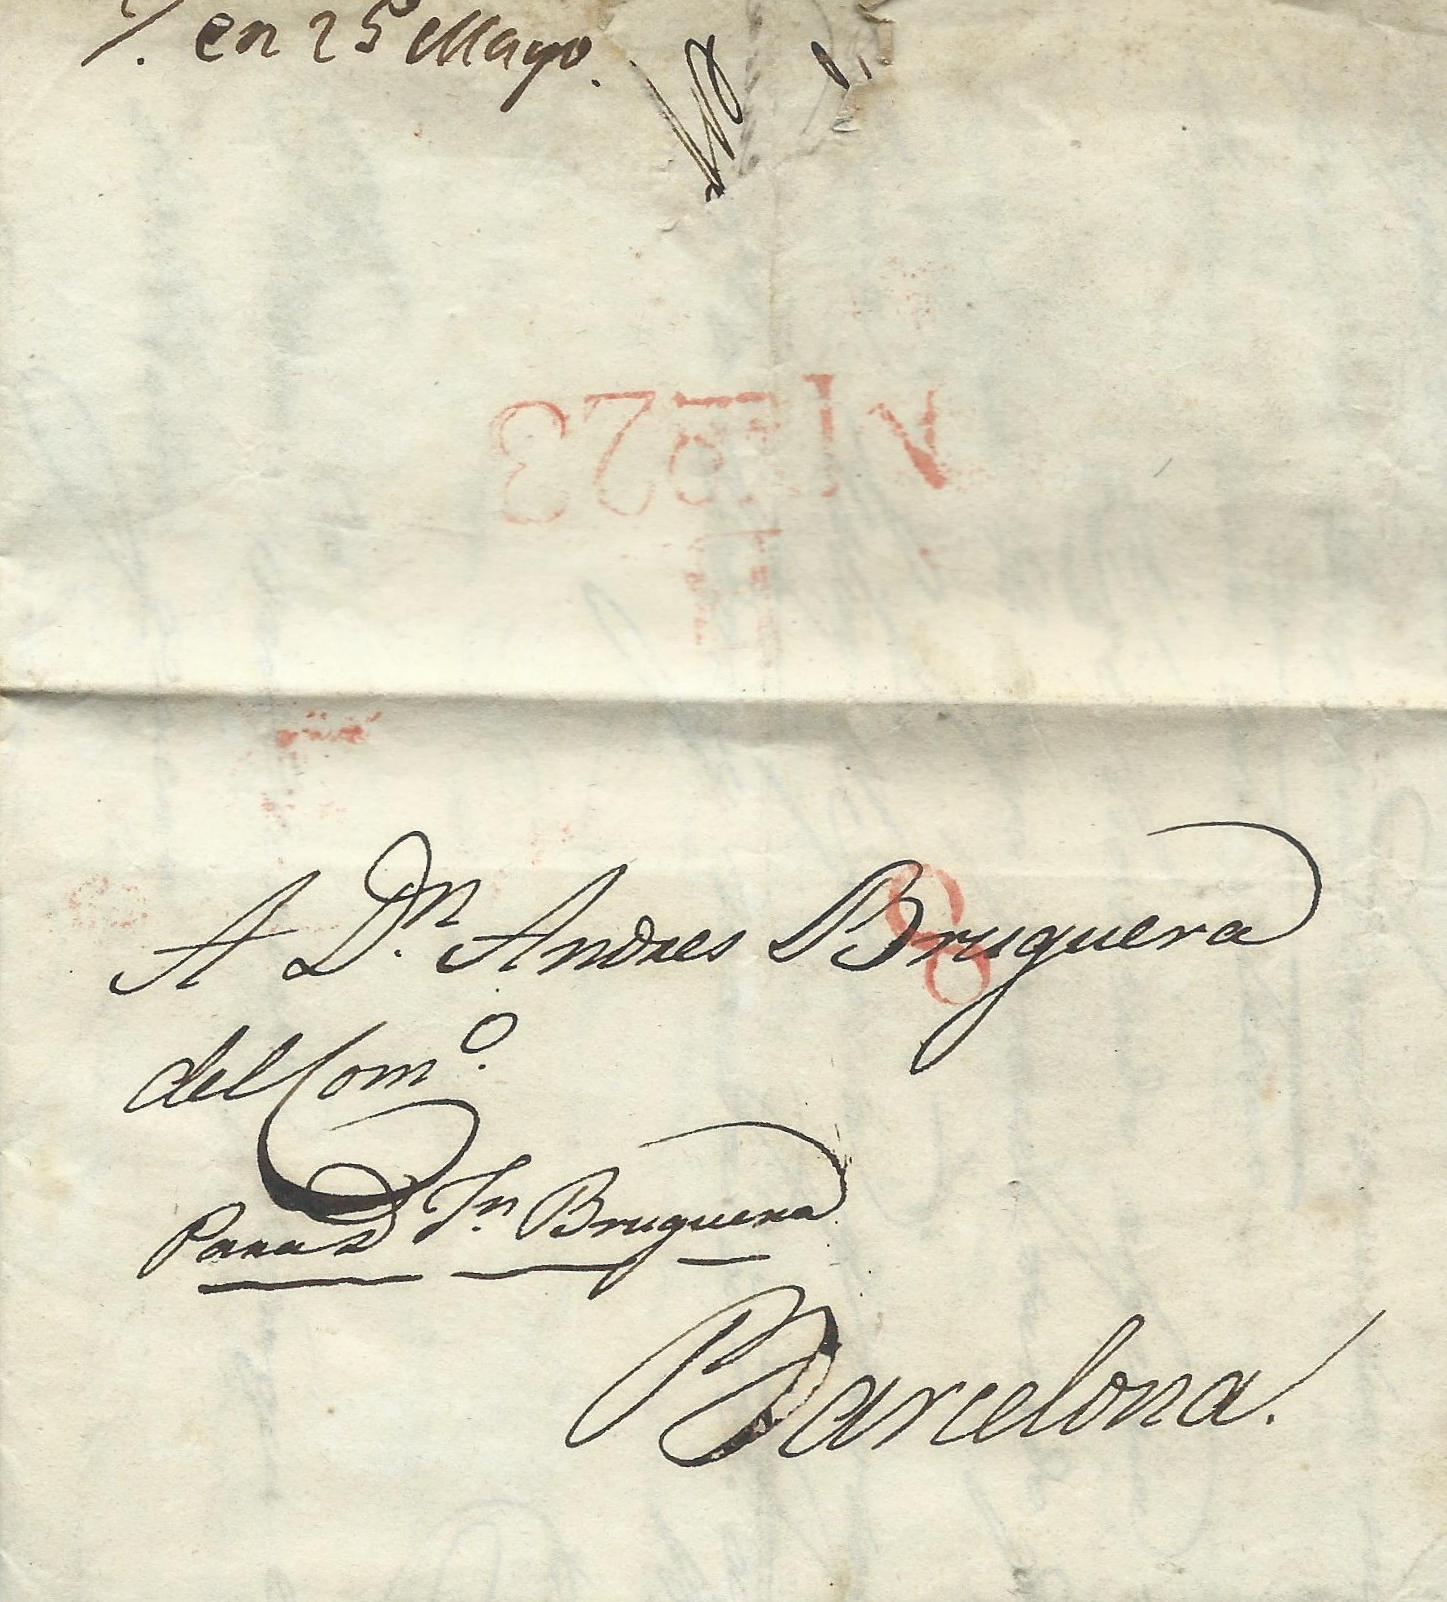 en 25 Mayo.
Nº 23
8
A Dⁿ. Andres Bruguera
del Comº.
Para D Jⁿ Bruguera
Barcelona.